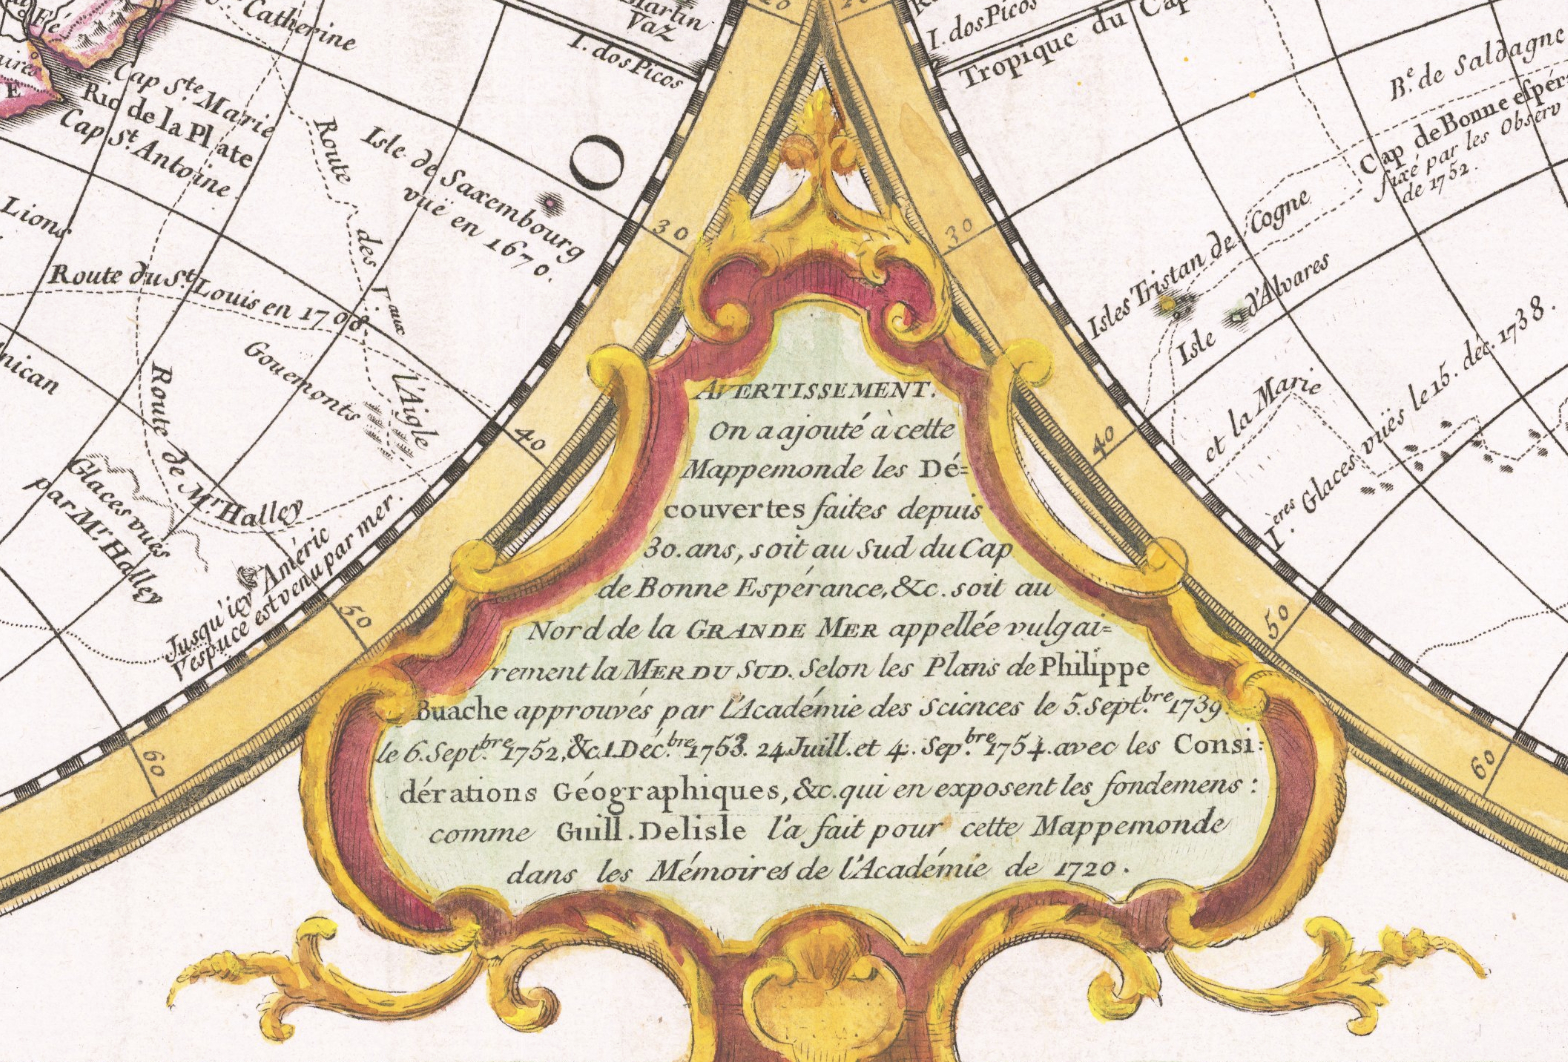 Catherine
Martin
Vaz
I. dos Picos
Cap Ste. Marie
Rio de la Plate
Cap St. Antoine
Lions
Route des Iaux
Isle de Saxembourg
vuë en 1670.
O
Route du St. Louis en 1708.
Gouemonts
l'Aigle
Route de Mr. Halley
Glaces vuës
par Mr. Halley
Jusqu'icy Améric
Vespuce est venu par mer.
30
40
50
60
I. dos Picos
Tropique du Cap
Be. de Saldagne
Cap de Bonne espér
fixé par les Observ
de 1752.
Isles Tristan de Cogne
Isle d'Alvares
et la Marie
Ières Glaces vuës le 15. déc. 1738.
30
40
50
60
AVERTISSEMENT.
On a ajouté à cette
Mappemonde les Dé=
couvertes faites depuis
30. ans, soit au Sud du Cap
de Bonne Espérance, &c. soit au
Nord de la GRANDE MER appellée vulgai=
rement la MER DU SUD. Selon les Plans de Philippe
Buache approuvés par l'Académie des Sciences le 5. Septbre. 1739
le 6. Septbre. 1752, &c. 1. Décbre. 1753. 24 Juill. et 4. Sepbre. 1754. avec les Consi=
dérations Géographiques, &c. qui en exposent les fondemens :
comme Guill. Delisle l'a fait pour cette Mappemonde
dans les Mémoires de l'Académie de 1720.